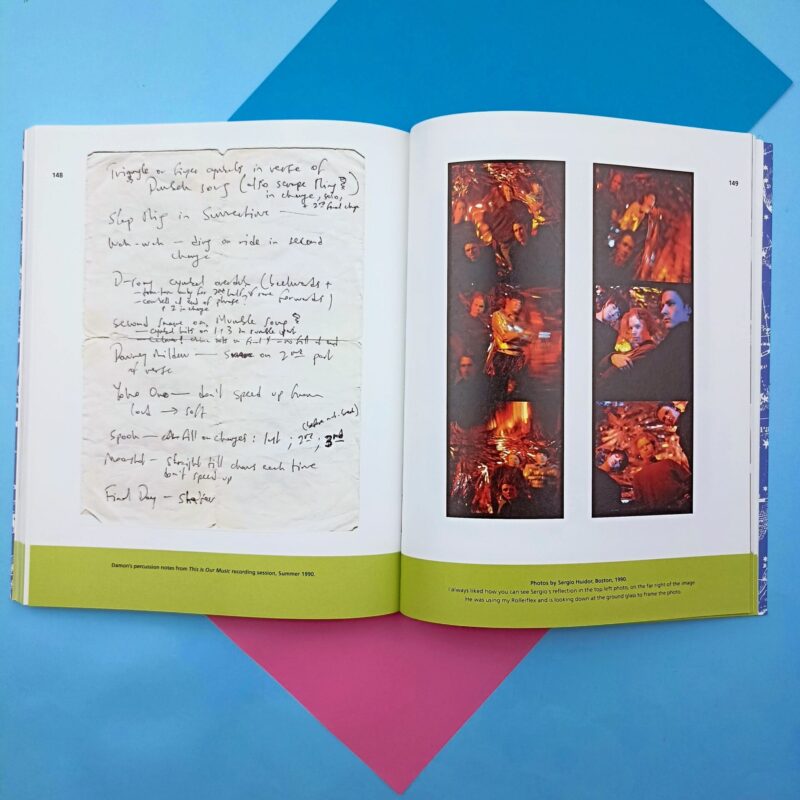 148
Triangle or finger cymbals in verse of
Dutch song (also scrape thing?)
in change, solo,
+ 2nd final chge
Slop thing in Summertime
Wah-wah — ding on ride in second
change
D-song cymbal overdub (backwards +
forwards)
+ 2 in change
second snare on Mumble song?
— cymbal hits on 1 + 3 in mumble part
— on 2nd part
of verse
Yoko Ono — don't speed up from
loud → soft
(before
Spook — All on changes: 1st ; 2nd ; 3rd
straight till chorus each time
don't speed up
Final Day —
Damon's percussion notes from This Is Our Music recording session, Summer 1990.
149
Photos by Sergio Huidor, Boston, 1990.
I always liked how you can see Sergio's reflection in the top left photo, on the far right of the image.
He was using my Rolleiflex and is looking down at the ground glass to frame the photo.